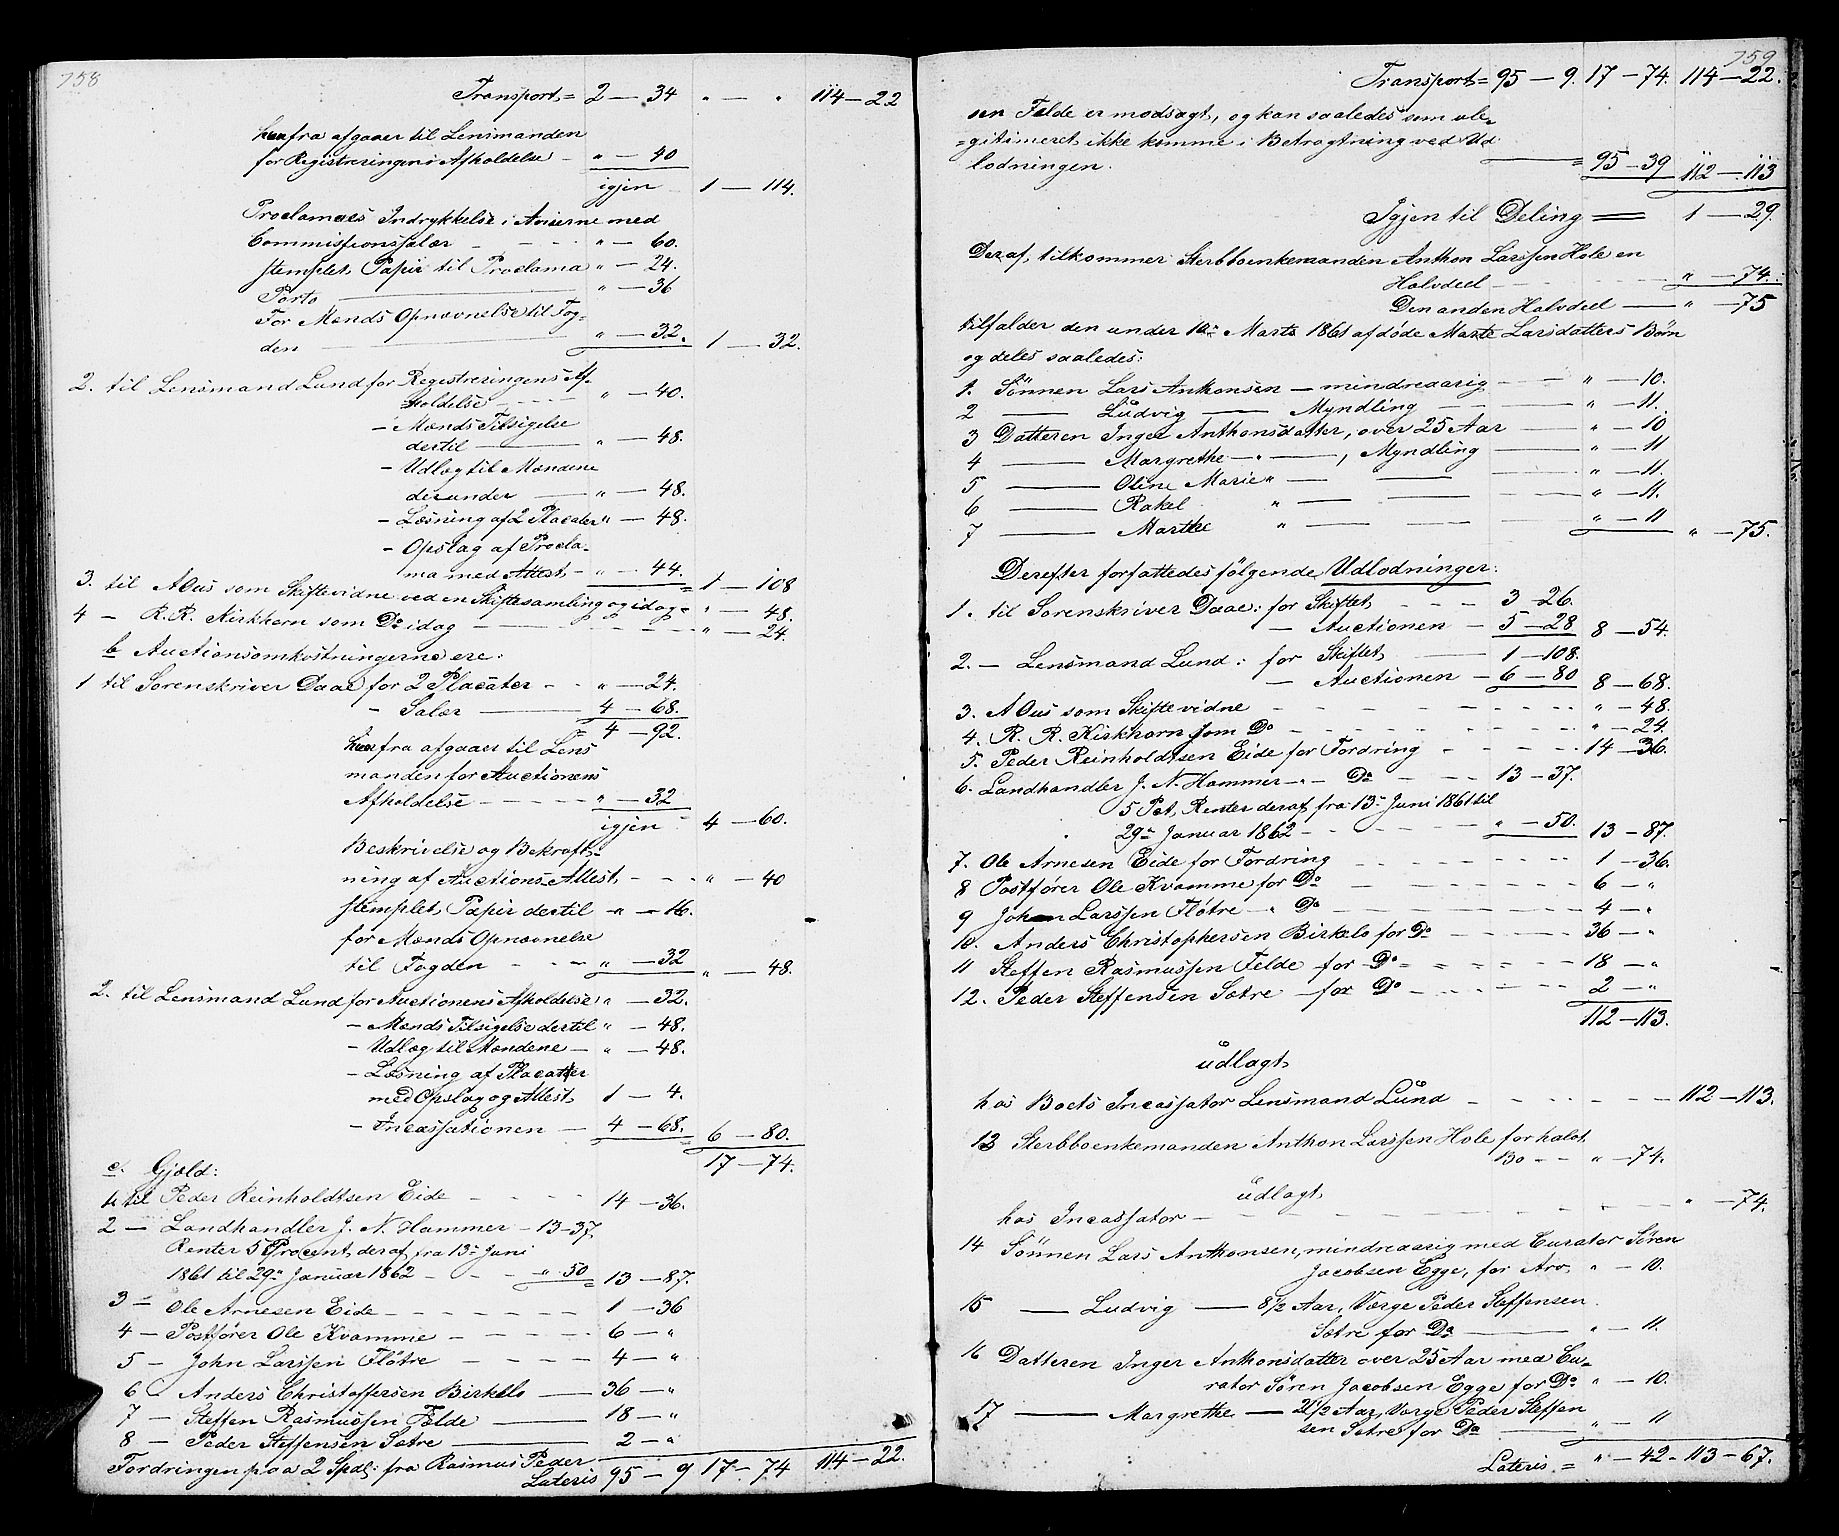 758
Transport = 2 — 34 " — " 114 — 22
herfra afgaaer til Lensmanden
for Registreringens Afholdelse — " — 40
igjen 1 — 114.
Proclamaets Indrykkelse i Aviserne med
Commissionssalær - - - " — 60.
stemplet Papir til Proclama " — 24.
Porto — " — 36
For Mænds Opnævnelse til Fog=
den — " — 32. 1 — 32.
2. til Lensmand Lund for Registreringens Af-
holdelse - - - " — 40.
- Mænds Tilsigelse
dertil — " — 48.
- Udlæg til Mændene
derunder — " — 48.
- Læsning af 2 Placater " — 48.
- Opslag af Procla-
ma med Attest - " — 44. 1 — 108
3. til A Aus som Skiftevidne ved en Skiftesamling og idag " — 48.
4 — R. R. Kirkhorn som Do idag — " — 24.
b Auctionsomkostningerne ere:
1 til Sorenskriver Daae for 2 Placater - - " — 24.
- Salær — 4 — 68.
4 — 92.
herfra afgaaer til Lens
manden for Auctionens
Afholdelse - - - " — 32
igjen 4 — 60.
Beskrivelse og Bekræft-
ning af Auctions-Attest - - - " — 40
stemplet Papir dertil " — 16.
for Mænds Opnævnelse
til Fogden - - - " — 32 " — 48.
2. til Lensmand Lund for Auctionens Afholdelse " — 32.
- Mænds Tilsigelse dertil " — 48.
- Udlæg til Mændene — " — 48.
- Læsning af Placater
med Opslag og Attest 1 — 4.
- Incassationen — 4 — 68. 6 — 80.
17 — 74.
c. Gjæld:
1. til Peder Reinholdtsen Eide - - - 14 — 36.
2 — Landhandler J. N. Hammer - 13 - 37.
Renter 5 Procent deraf fra 13de Juni
1861 til 29de Januar 1862 - - - " 50 13 — 87.
3 — Ole Arnesen Eide - - - 1 — 36
4 — Postfører Ole Kvamme - - - 6 — "
5 — John Larssen Fløtre - - - 4 — "
6 Anders Christoffersen Birkelo — 36 — "
7 — Steffen Rasmussen Felde — 18 — "
8 — Peder Steffensen Sætre — 2 — "
Fordringen paa 2 Spdl: fra Rasmus Peder
Lateris 95 — 9 17 — 74 114 — 22.
759
Transport = 95 — 9. 17 — 74. 114 — 22.
sen Felde er modsagt, og kan saaledes som ule-
=gitimeret ikke komme i Betragtning ved Ud
lodningen. — = 95 — 39 112 — 113
Igjen til Deling = 1 — 29.
Deraf tilkommer Sterbboenkemanden Anthon Larssen Hole en
Halvdeel - - - " — 74.
Den anden Halvdeel — " — 75
tilfalder den under 12te Marts 1861 afdøde Marte Larsdatters Børn
og deles saaledes:
1. Sønnen Lars Anthonsen — mindreaarig — " — 10.
2 — Ludvig — Myndling — " — 11.
3 Datteren Inger Anthonsdatter, over 25 Aar — " — 10
4 — Margrethe — " —, Myndling — " — 11
5 — Oline Marie " — — " — 11.
6 — Rakel " — — " — 11.
7 — Marthe " — — " — 11 " — 75.
Derefter forfattedes følgende Udlodninger:
1. til Sorenskriver Daae: for Skiftet - - - 3 — 26.
— Auctionen - 5 — 28 8 — 54.
2. — Lensmand Lund: for Skiftet — 1 — 108.
— Auctionen - 6 — 80 8 — 68.
3. A Aus som Skiftevidne - - - " — 48.
4. R. R. Kirkhorn som Do - - - " — 24.
5. Peder Reinholdtsen Eide for Fordring - - - 14 — 36.
6. Landhandler J. N. Hammer - " - Do - - - 13 — 37.
5 Pct Renter deraf fra 13de Juni 1861 til
29de Januar 1862 - - - " — 50. 13 — 87.
7. Ole Arnesen Eide for Fordring - - - 1 — 36.
8 Postfører Ole Kvamme for Do - - - 6 — "
9 John Larssen Fløtre - " Do - - - 4 — "
10. Anders Christophersen Birkelo for Do - - - 36 — "
11 Steffen Rasmussen Felde for Do - - - 18 — "
12. Peder Steffensen Sætre — for Do - - - 2 — "
112 — 113.
udlagt
hos Boets Incassator Lensmand Lund - - - 112 — 113.
13 Sterbboenkemanden Anthon Larssen Hole for halvt
Bo - - " — 74.
udlagt
hos Incassator - - - " — 74.
14 Sønnen Lars Anthonsen, mindreaarig med Curator Søren
Jacobsen Egge, for Arv " — 10.
15 — Ludvig — 8 1/2 Aar, Værge Peder Steffensen
Sætre for Do — " — 11.
16 Datteren Inger Anthonsdatter over 25 Aar med Cu=
rator Søren Jacobsen Egge for Do " — 10.
17 — Margrethe — 21 1/2 Aar, Værge Peder Steffen
sen Sætre for Do — " — 11
Lateris = " — 42 - 113 — 67.